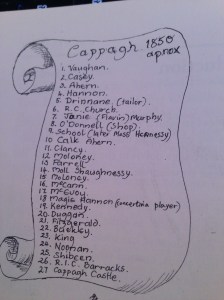 Cappagh 1850
aprox
1. Vaughan.
2. Casey.
3. Ahern.
4. Hannon.
5. Drinnane (tailor).
6. R.C. Church.
7. Janie (Florin) Murphy.
8. O'Donnell (Shop)
9. School (later Musc Hennessy)
10 Calk Ahern.
11. Clancy.
12. Moloney.
13. Farrell
14. Moll Shaughnessy.
15. Moloney.
16. McCann.
17. McEvoy.
18 Magie Hannon (concertina player)
19. Kennedy.
20. Duggan.
21. Fitzgerald.
22. Buckley.
23. King
24. Noonan.
25. Shibeen.
26. R.I.C. Barracks.
27 Cappagh Castle.